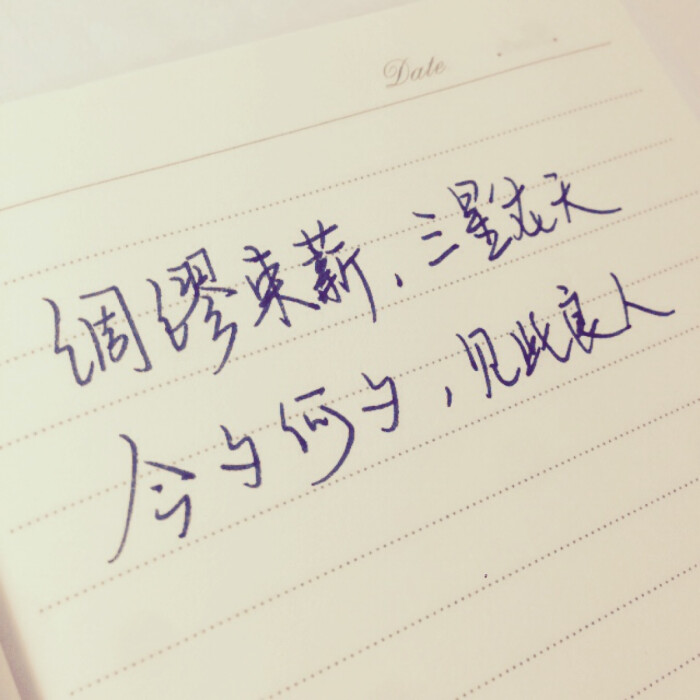 Date
绸缪束薪，三星在天
今夕何夕，见此良人